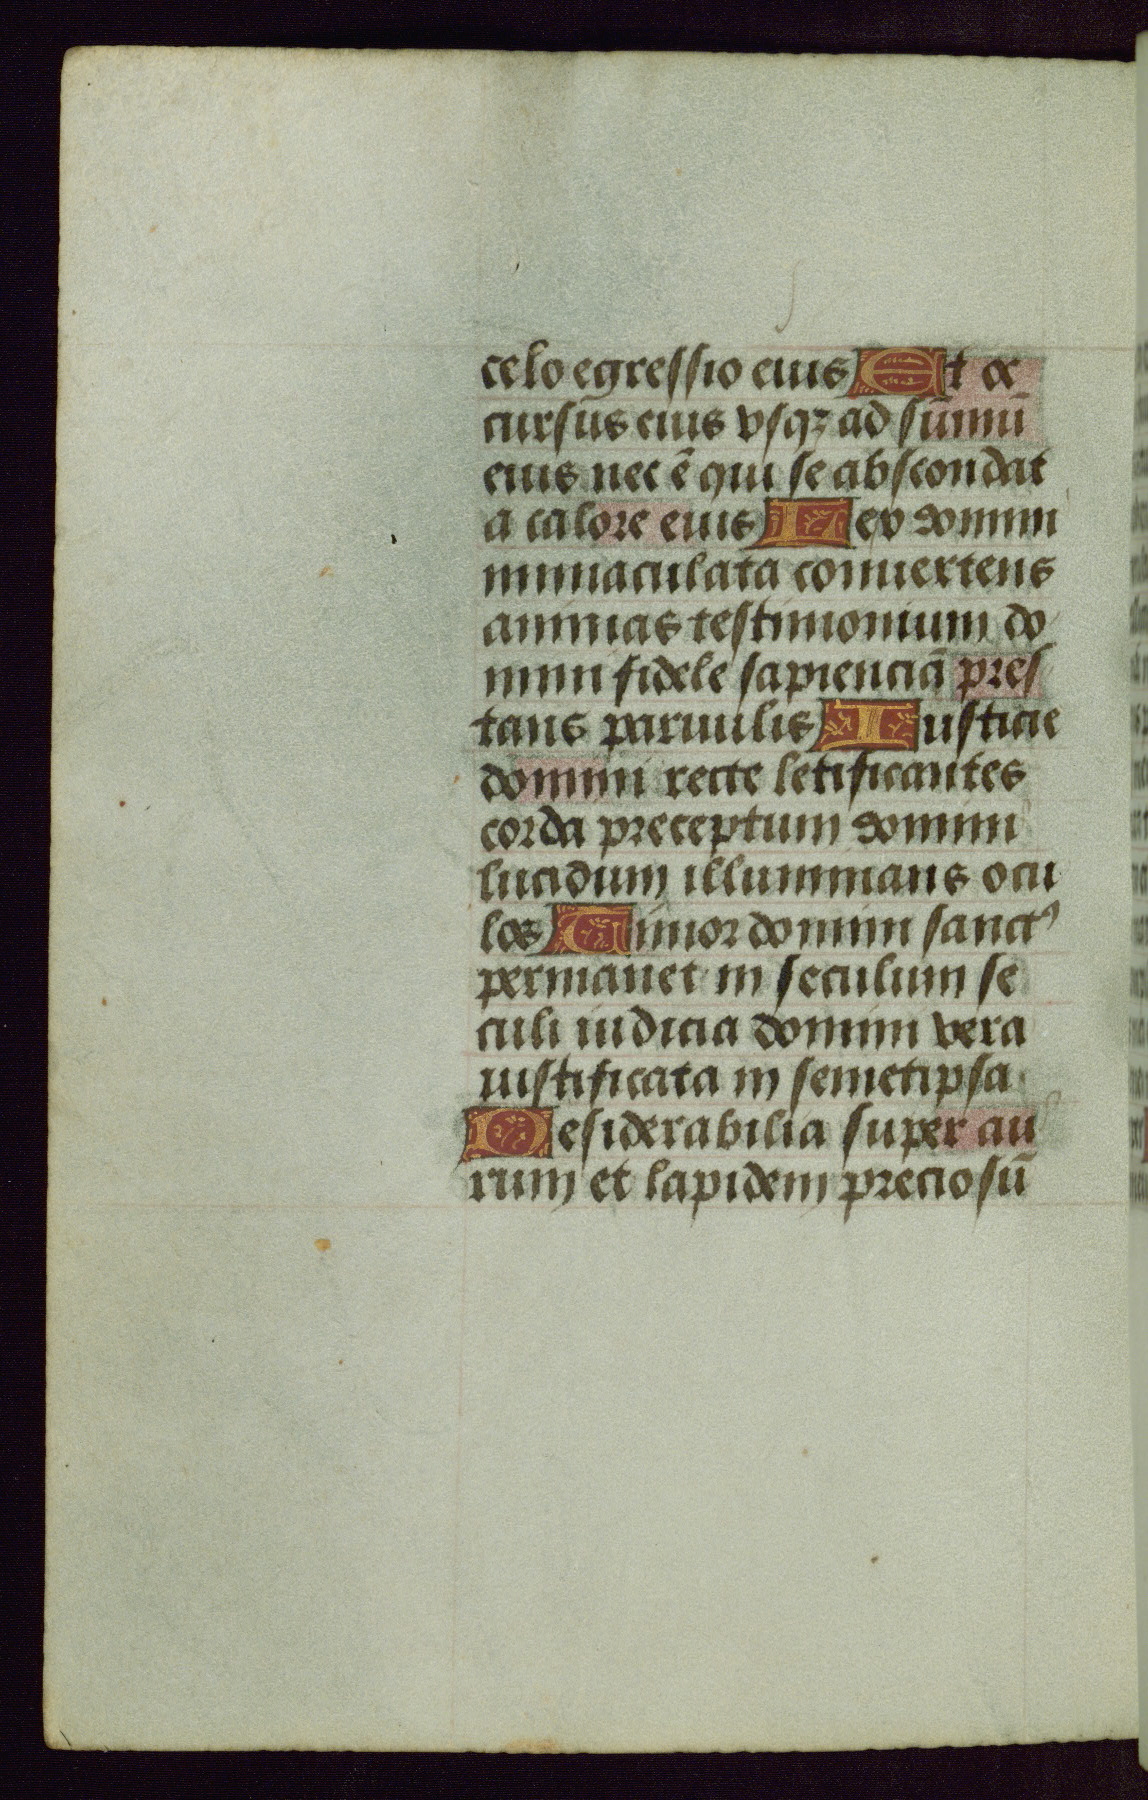 celo egressio eius Et oc
cursus eius vsqʒ ad sūmū
eius nec ē qui se abscondat
a calore eius Lex domini
immaculata conuertens
animas testimonium do
mini fidele sapienciā pres
tans paruulis Iusticie
domini recte letificantes
corda preceptum domini
lucidum illuminans ocu
los Timor domini sanctꝰ
permanet in seculum se
culi iudicia domini vera
iustificata in semetipsa
Desiderabilia super au
rum et lapidem preciosū